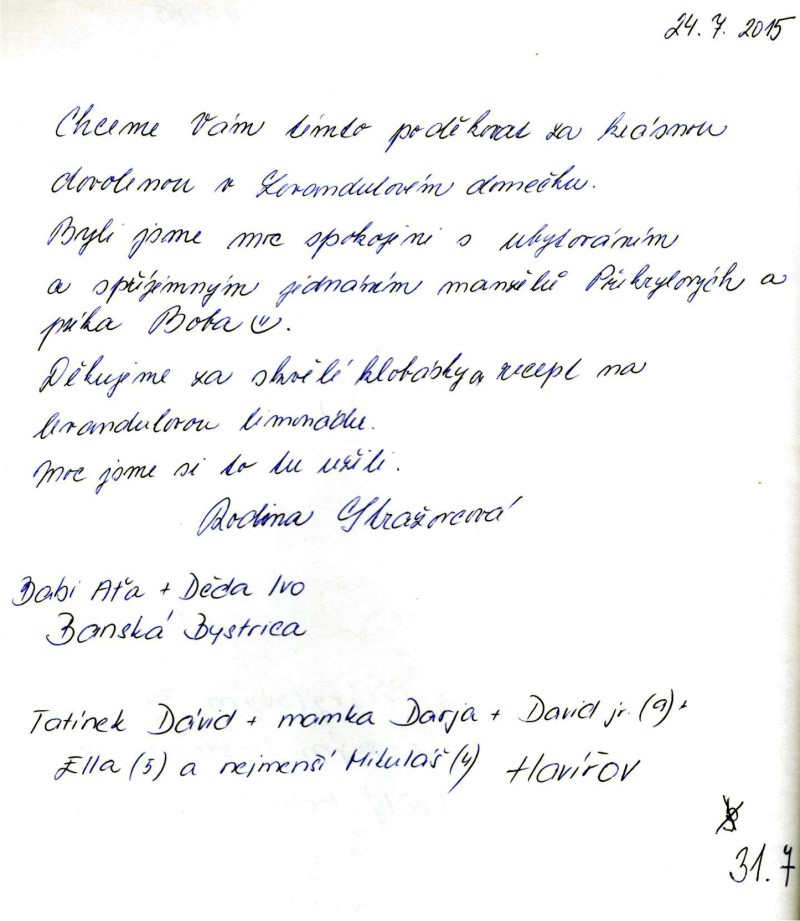 24. 7. 2015
Chceme Vám tímto poděkovat za krásnou
dovolenou v Levandulovém domečku.
Byli jsme moc spokojeni s ubytováním
a s příjemným jednáním manželů Přikrylových a
psíka Boba.
Děkujeme za skvělé klobásky a recept na
levandulovou limonádu.
Moc jsme si to tu užili.
Rodina
Babi Aťa + Děda Ivo
Banská Bystrica
Tatínek Dávid + mamka Darja + David jr. (9) +
Ella (5) a nejmenší Mikuláš (4) Havířov
31. 7